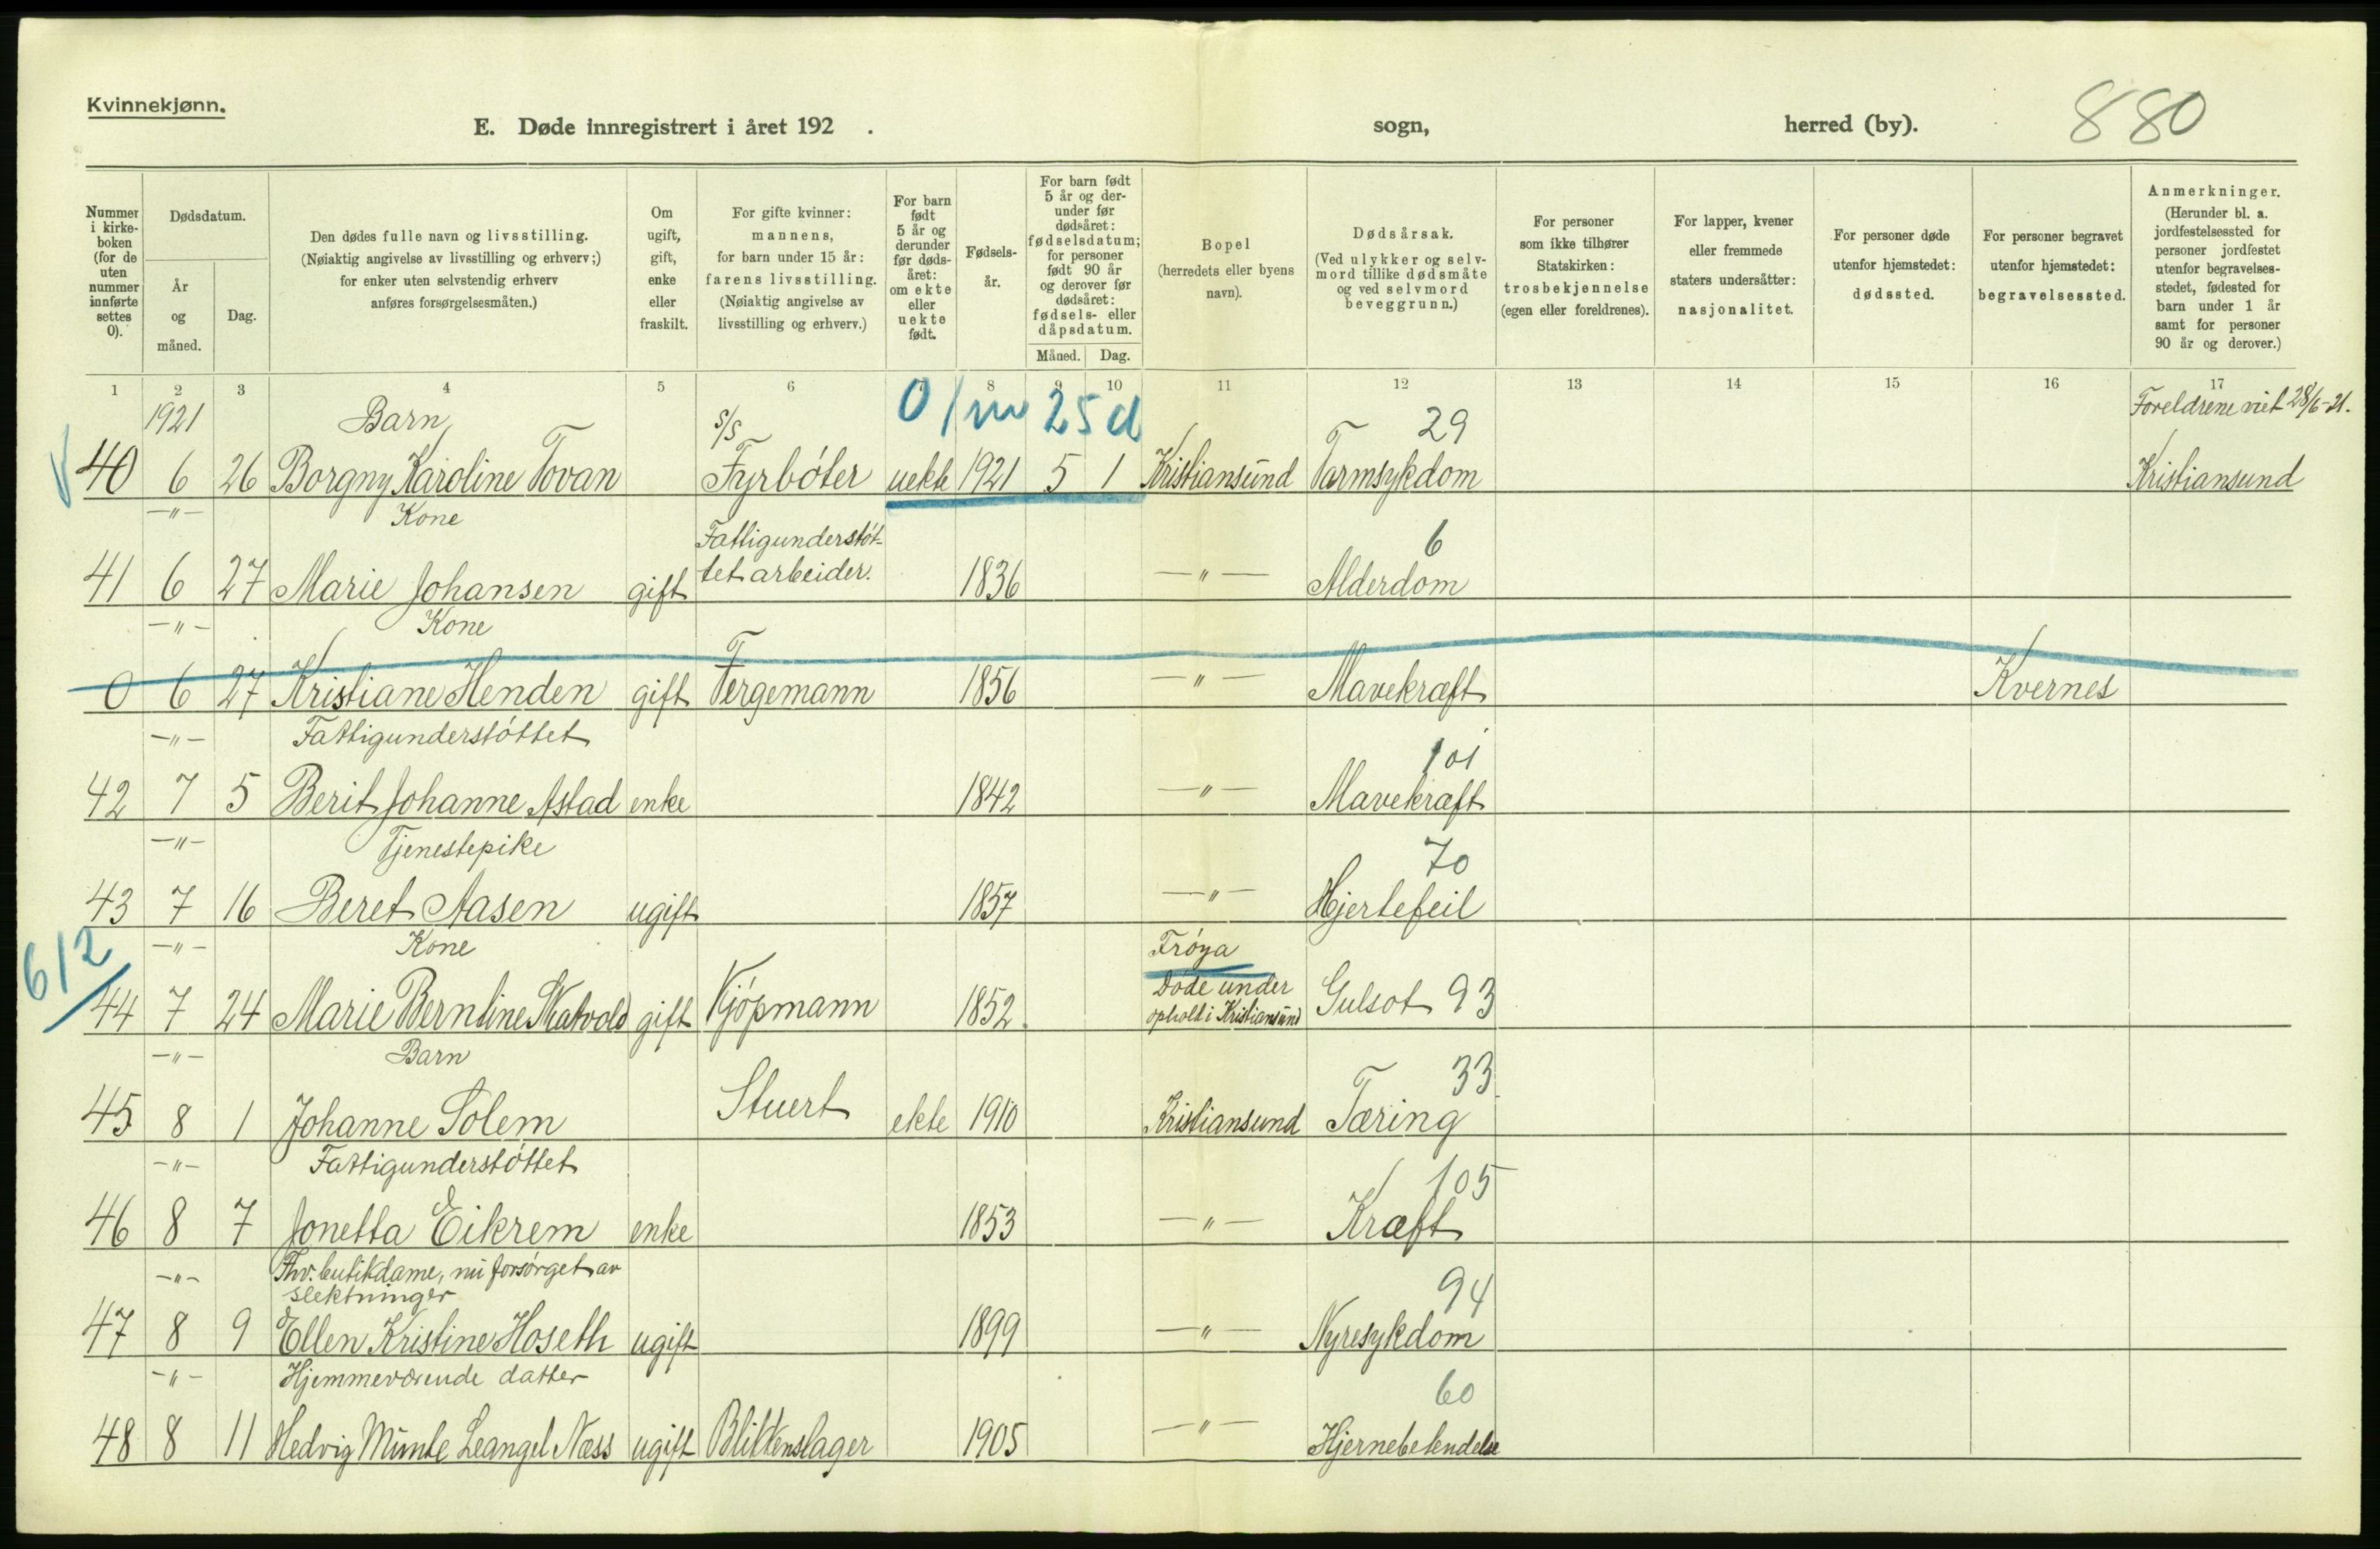 Kvinnekjønn.
E. Døde innregistrert i året 192 . sogn, herred (by). 880
Nummer i kirkeboken (for de uten nummer innførte settes 0).
Dødsdatum.
År og måned.
Dag.
Den dødes fulle navn og livsstilling.
(Nøiaktig angivelse av livsstilling og erhverv;)
for enker uten selvstendig erhverv
anføres forsørgelsesmåten.)
Om ugift, gift, enke eller fraskilt.
For gifte kvinner:
mannens,
for barn under 15 år:
farens livsstilling.
(Nøiaktig angivelse av
livsstilling og erhverv.)
For barn født 5 år og derunder før dødsåret: om ekte eller uekte født.
Fødsels-
år.
For barn født
5 år og der-
under før
dødsåret:
fødselsdatum;
for personer
født 90 år
og derover før
dødsåret:
fødsels- eller
dåpsdatum.
Måned. Dag.
Bopel
(herredets eller byens
navn).
Dødsårsak.
(Ved ulykker og selv-
mord tillike dødsmåte
og ved selvmord
beveggrunn.)
For personer
som ikke tilhører
Statskirken:
trosbekjennelse
(egen eller foreldrenes).
For lapper, kvener
eller fremmede
staters undersåtter:
nasjonalitet.
For personer døde
utenfor hjemstedet:
dødssted.
For personer begravet
utenfor hjemstedet:
begravelsessted.
Anmerkninger.
(Herunder bl. a.
jordfestelsessted for
personer jordfestet
utenfor begravelses-
stedet, fødested for
barn under 1 år
samt for personer
90 år og derover.)
1 2 3 4 5 6 8 9 10 11 12 13 14 15 16 17
1921 Barn s/s 0/m 25 d 29 Foreldrene viet 28/6-21.
40 6 26 Borgny Karoline Tovan Fyrbøter uekte 1921 5 1 Kristiansund Tarmsykdom Kristiansund
—"— Kone Fattigunderstøt- 6
41 6 27 Marie Johansen gift tet arbeider. 1836 —"— Alderdom
—"— Kone
0 6 27 Kristiane Henden gift Fergemann 1856 —"— Mavekræft Kvernes
—"— Fattigunderstøttet 101
42 7 5 Berit Johanne Astad enke 1842 —"— Mavekræft
—"— Tjenestepike 70
43 7 16 Beret Aasen ugift 1857 —"— Hjertefeil
612 —"— Kone Frøya
Døde under
44 7 24 Marie Berntine Skatvold gift Kjøpmann 1852 opholt i Kristiansund Gulsot 93
—"— Barn 33
45 8 1 Johanne Solem Stuert ekte 1910 Kristiansund Tæring
—"— Fattigunderstøttet 105
46 8 7 Jonetta Eikrem enke 1853 —"— Kræft
—"— Fhv. butikdame, nu forsørget av
slektninger 94
47 8 9 Ellen Kristine Hoseth ugift 1899 —"— Nyresykdom
—"— Hjemmeværende datter 60
48 8 11 Hedvig Munte Leangel Næss ugift Blikkenslager 1905 —"— Hjernebetendelse